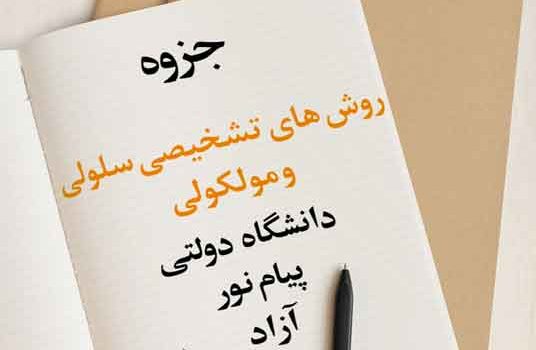 جزوه
روش های تشخیصی سلولی
ومولکولی
دانشگاه دولتی
پیام نور
آزاد